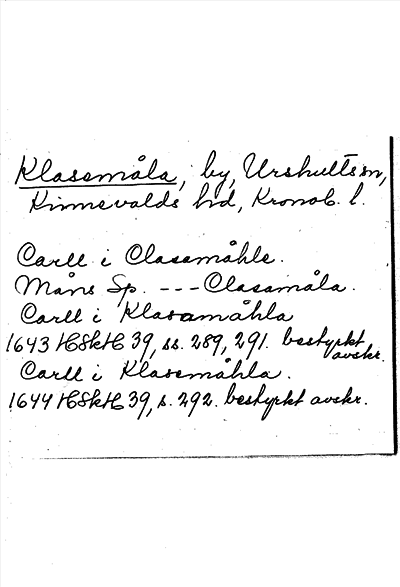 Klasemåla, by, Urshults sn,
Kinnevalds hd, Kronob. l.
Carll i Clasemåhle.
Måns Sp. --- Clasamåla.
Carll i Klasamåhla
1643 HSkH 39, ss. 289, 291. bestyrkt avskr.
Carll i Klasemåhla.
1644 HSkH 39, s. 292. bestyrkt avskr.